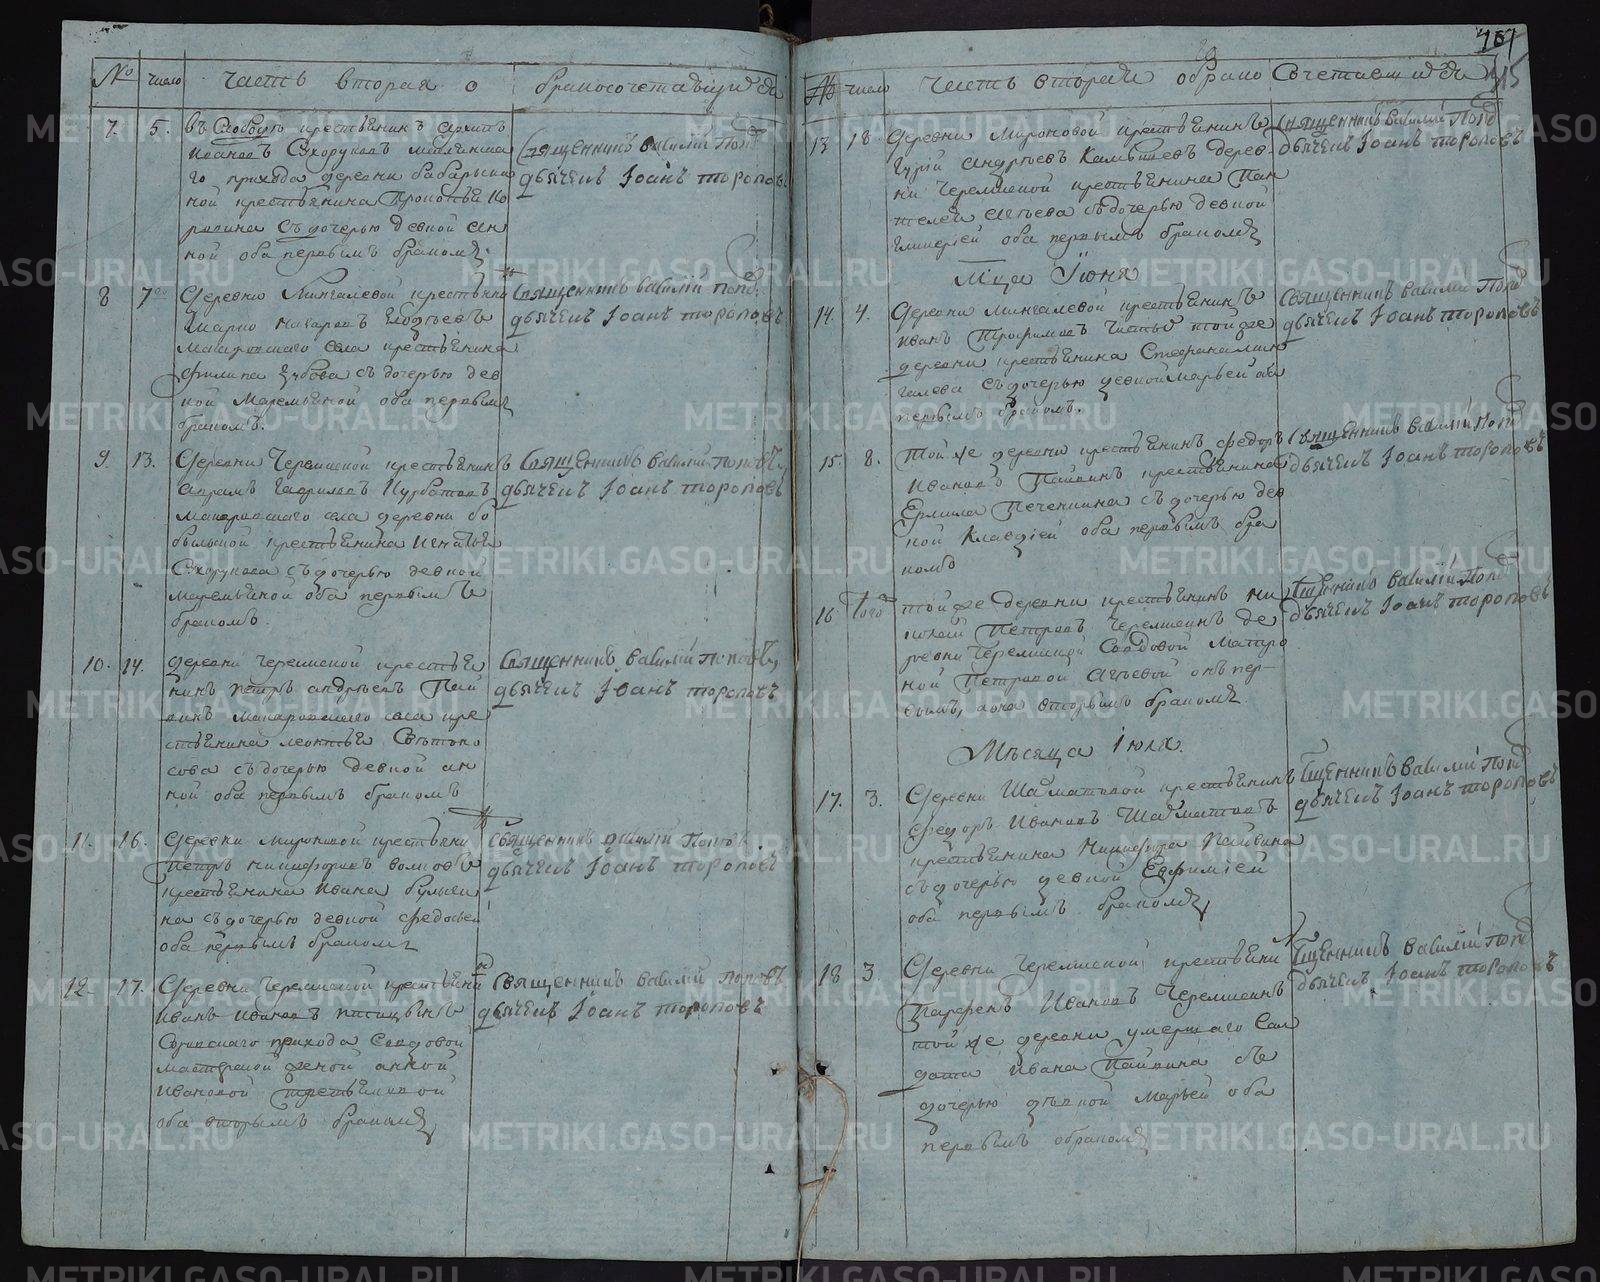 № число часть вторая о бракосочетавшихся
7. 5. въ Слободы крестьянинъ Архипъ
Ивановъ Сухоруковъ
го прихода деревни Бабарыки
ной крестьянина Прокопья Ко
съ дочерью девкой Ан
ной оба первымъ бракомъ
Священникъ Василій Поповъ
дьячекъ Іоанъ Тороповъ
8 7 Деревни Мингалевой крестьяни
Макаровъ
Макаровскаго села крестьянина
Филипа Зубова съ дочерью дев
кой Маремьяной оба первымъ
бракомъ.
Священникъ Василій Поповъ
дьячекъ Іоанъ Тороповъ
9. 13. Деревни Черемиской крестьянинъ
Абрамъ Гавриловъ Курбатовъ
Макаровскаго села деревни Бо
быльской крестьянина Игнатья
Сухорукова съ дочерью девкой
Маремьяной оба первымъ
бракомъ.
Священникъ Василій Поповъ
дьячекъ Іоанъ Тороповъ
10. 14. Деревни Черемиской крестья
нинъ Петръ Андреевъ Пай
винъ Макаровскаго села кре
стьянина Леонтья
сова съ дочерью девкой Ан
ной оба первымъ бракомъ
Священникъ Василій Поповъ
дьячекъ Іоанъ Тороповъ
11. 16. Деревни Мироновой крестьяни
Петръ Никифоровъ Волковъ
крестьянина Ивана
на съ дочерью девкой Федосьей
оба первымъ бракомъ
Священникъ Василій Поповъ
дьячекъ Іоанъ Тороповъ
12 17. Деревни Черемиской крестьяни
Иванъ Ивановъ Птицынъ
прихода Вдовой
мастерской женой Анной
Ивановой
оба вторымъ бракомъ
Священникъ Василій Поповъ
дьячекъ Іоанъ Тороповъ
№ число Часть вторая о брако Сочетавшихся
13 18. Деревни Мироновой крестьянинъ
Гурій Андреевъ Камышевъ дерев
ни Черемиской крестьянина Пан
телея Агѣева съ дочерью девкой
Гликеріей оба первымъ бракомъ
Священникъ Василій Поповъ
дьячекъ Іоанъ Тороповъ
Мца Іюня
14. 4. Деревни Мингалевой крестьянинъ
Иванъ Трофимовъ той же
деревни крестьянина Стефана Мин
галева съ дочерью девкой Марьей оба
первымъ бракомъ.
Священникъ Василій Поповъ
дьячекъ Іоанъ Тороповъ
15. 8. Той же деревни крестьянинъ Федоръ
Ивановъ Пайвинъ крестьянина
Ермила Печенкина съ дочерью дев
кой Клавдіей оба первымъ бра
комъ
Священникъ Василій Поповъ
дьячекъ Іоанъ Тороповъ
16 Той же деревни крестьянинъ Ни
Петровъ Черемисинъ де
ревни Черемиской Вдовой Матро
ной Петровой Агѣевой онъ пер
вымъ, а она вторымъ бракомъ
Священникъ Василій Поповъ
дьячекъ Іоанъ Тороповъ
Мѣсяца Іюля.
17. 3. Деревни Шайматовой крестьянинъ
Федоръ Ивановъ Шайматовъ
крестьянина Никифора Пайвина
съ дочерью девкой Евфиміей
оба первымъ бракомъ
Священникъ Василій Поповъ
дьячекъ Іоанъ Тороповъ
18 3. Деревни Черемиской крестьяни
Парфенъ Ивановъ Черемисинъ
той же деревни умершаго Сол
дата Ивана Пайвина съ
дочерью дѣвкой Марьей оба
первымъ бракомъ
Священникъ Василій Поповъ
дьячекъ Іоанъ Тороповъ
METRIKI.GASO-URAL.RU